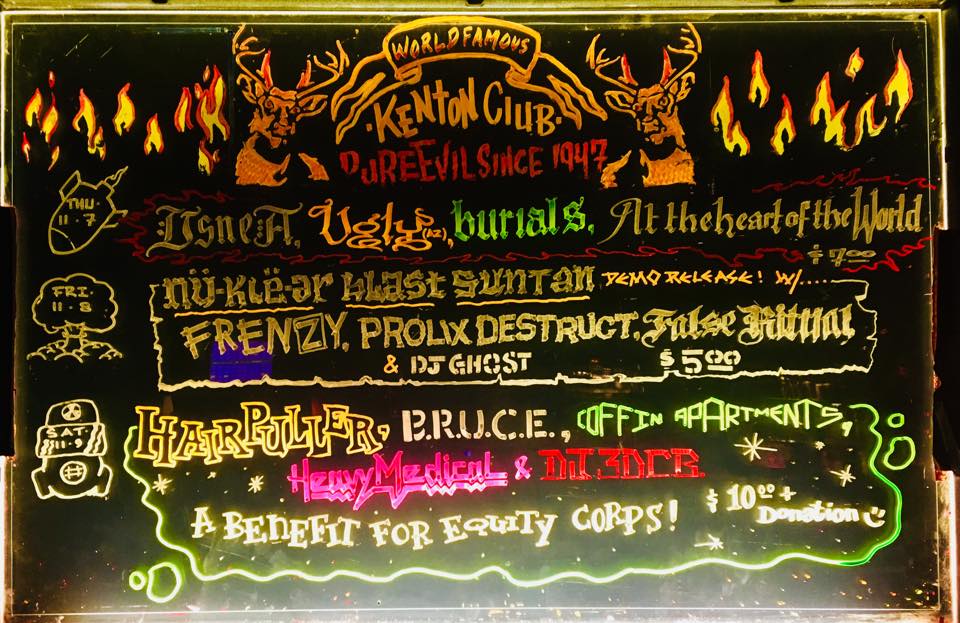 WORLD FAMOUS
KENTON CLUB
PUREEVIL SINCE 1947
THU. 11·7
UsneA, Ugly(AZ), burials, At the heart of the World
$7.00
FRI. 11·8
nü-klē-ər blast suntan DEMO RELEASE! W/.....
FRENZY, PROLIX DESTRUCT, False Ritual
& DJ GHOST $5.00
SAT. 11·9
HAIRPULLER, B.R.U.C.E., COFFIN APARTMENTS,
HeavyMedical & DJ 3DCB
A BENEFIT FOR EQUITY CORPS! $10.00 + Donation